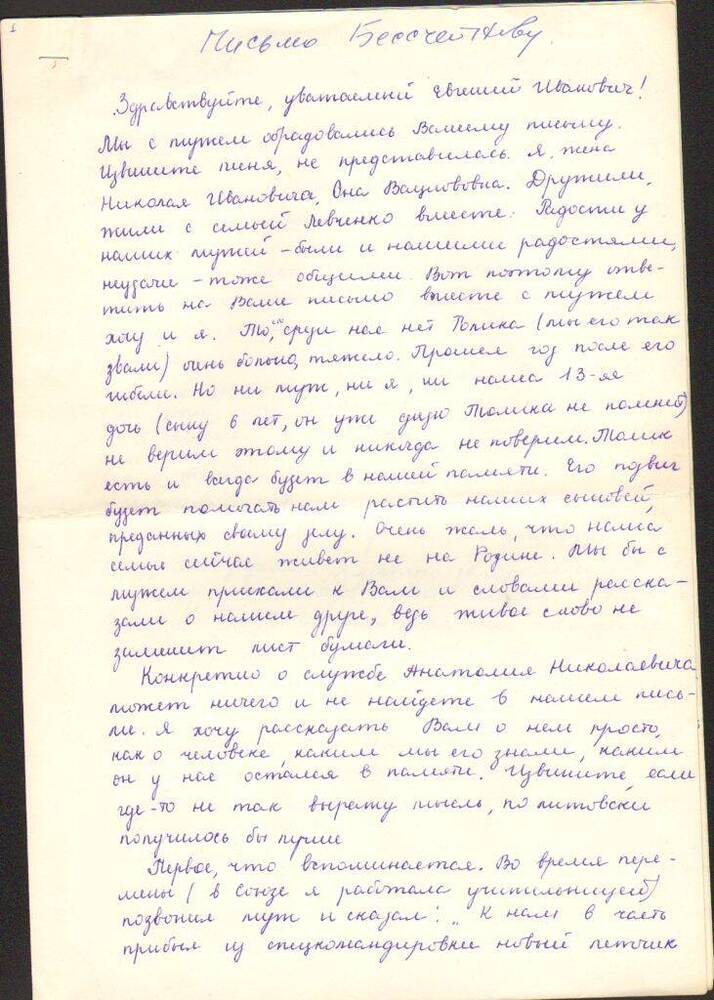 1
Письмо Бессчетнову
Здравствуйте, уважаемый Евгений Иванович!
Мы с мужем обрадовались Вашему письму.
Извините меня, не представилась. Я, жена
Николая Ивановича, Она Вацлововна. Дружили,
жили с семьей Левченко вместе. Радости у
наших мужей – были и нашими радостями,
неудачи – тоже общими. Вот поэтому отве-
тить на Ваше письмо вместе с мужем
хочу и я. То, что среди нас нет Толика (мы его так
звали) очень больно, тяжело. Прошел год после его
гибели. Но ни муж, ни я, ни наша 13-яя
дочь (сыну 6 лет, он уже дядю Толика не помнит)
не верим этому и никогда не поверим. Толик
есть и всегда будет в нашей памяти. Его подвиг
будет помогать нам растить наших сыновей,
преданных своему делу. Очень жаль, что наша
семья сейчас живет не на Родине. Мы бы с
мужем приехали к Вам и словами расска-
зали о нашем друге, ведь живое слово не
заменит лист бумаги.
Конкретно о службе Анатолия Николаевича
может ничего и не найдете в нашем пись-
ме. Я хочу рассказать Вам о нем просто,
как о человеке, каким мы его знали, каким
он у нас остался в памяти. Извините, если
где-то не так выражу мысль, по литовски
получилось бы лучше
Первое, что вспоминается. Во время пере-
мены (в Союзе я работала учительницей)
позвонил муж и сказал: „К нам в часть
прибыл из спецкомандировки новый летчик